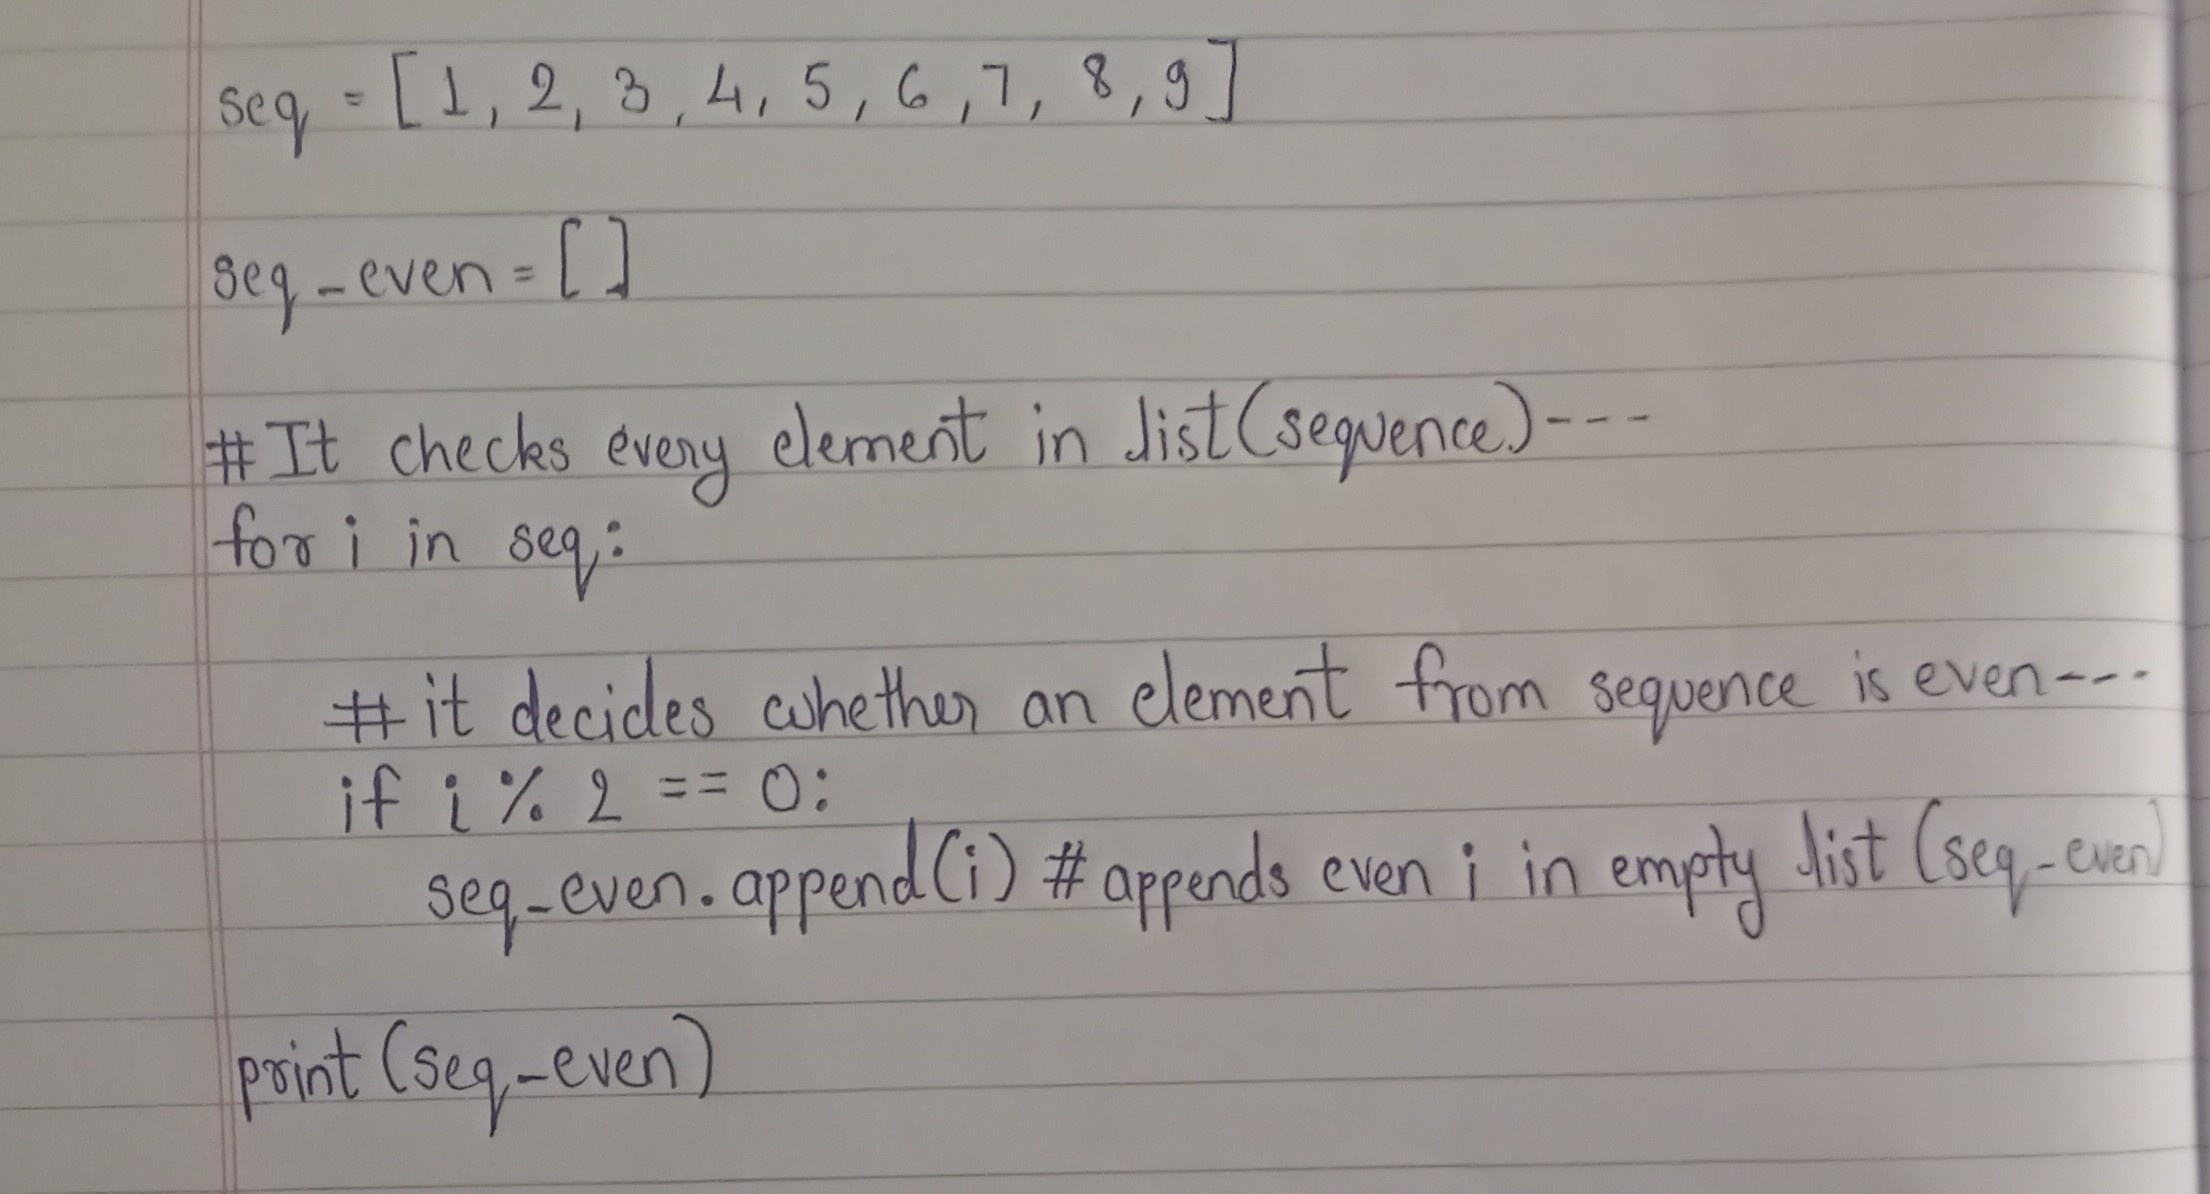 seq = [1, 2, 3, 4, 5, 6, 7, 8, 9]
seq_even = []
# It checks every element in list(sequence)---
for i in seq:
# it decides whether an element from sequence is even---
if i % 2 == 0:
seq_even.append(i) # appends even i in empty list (seq_even)
print (seq_even)